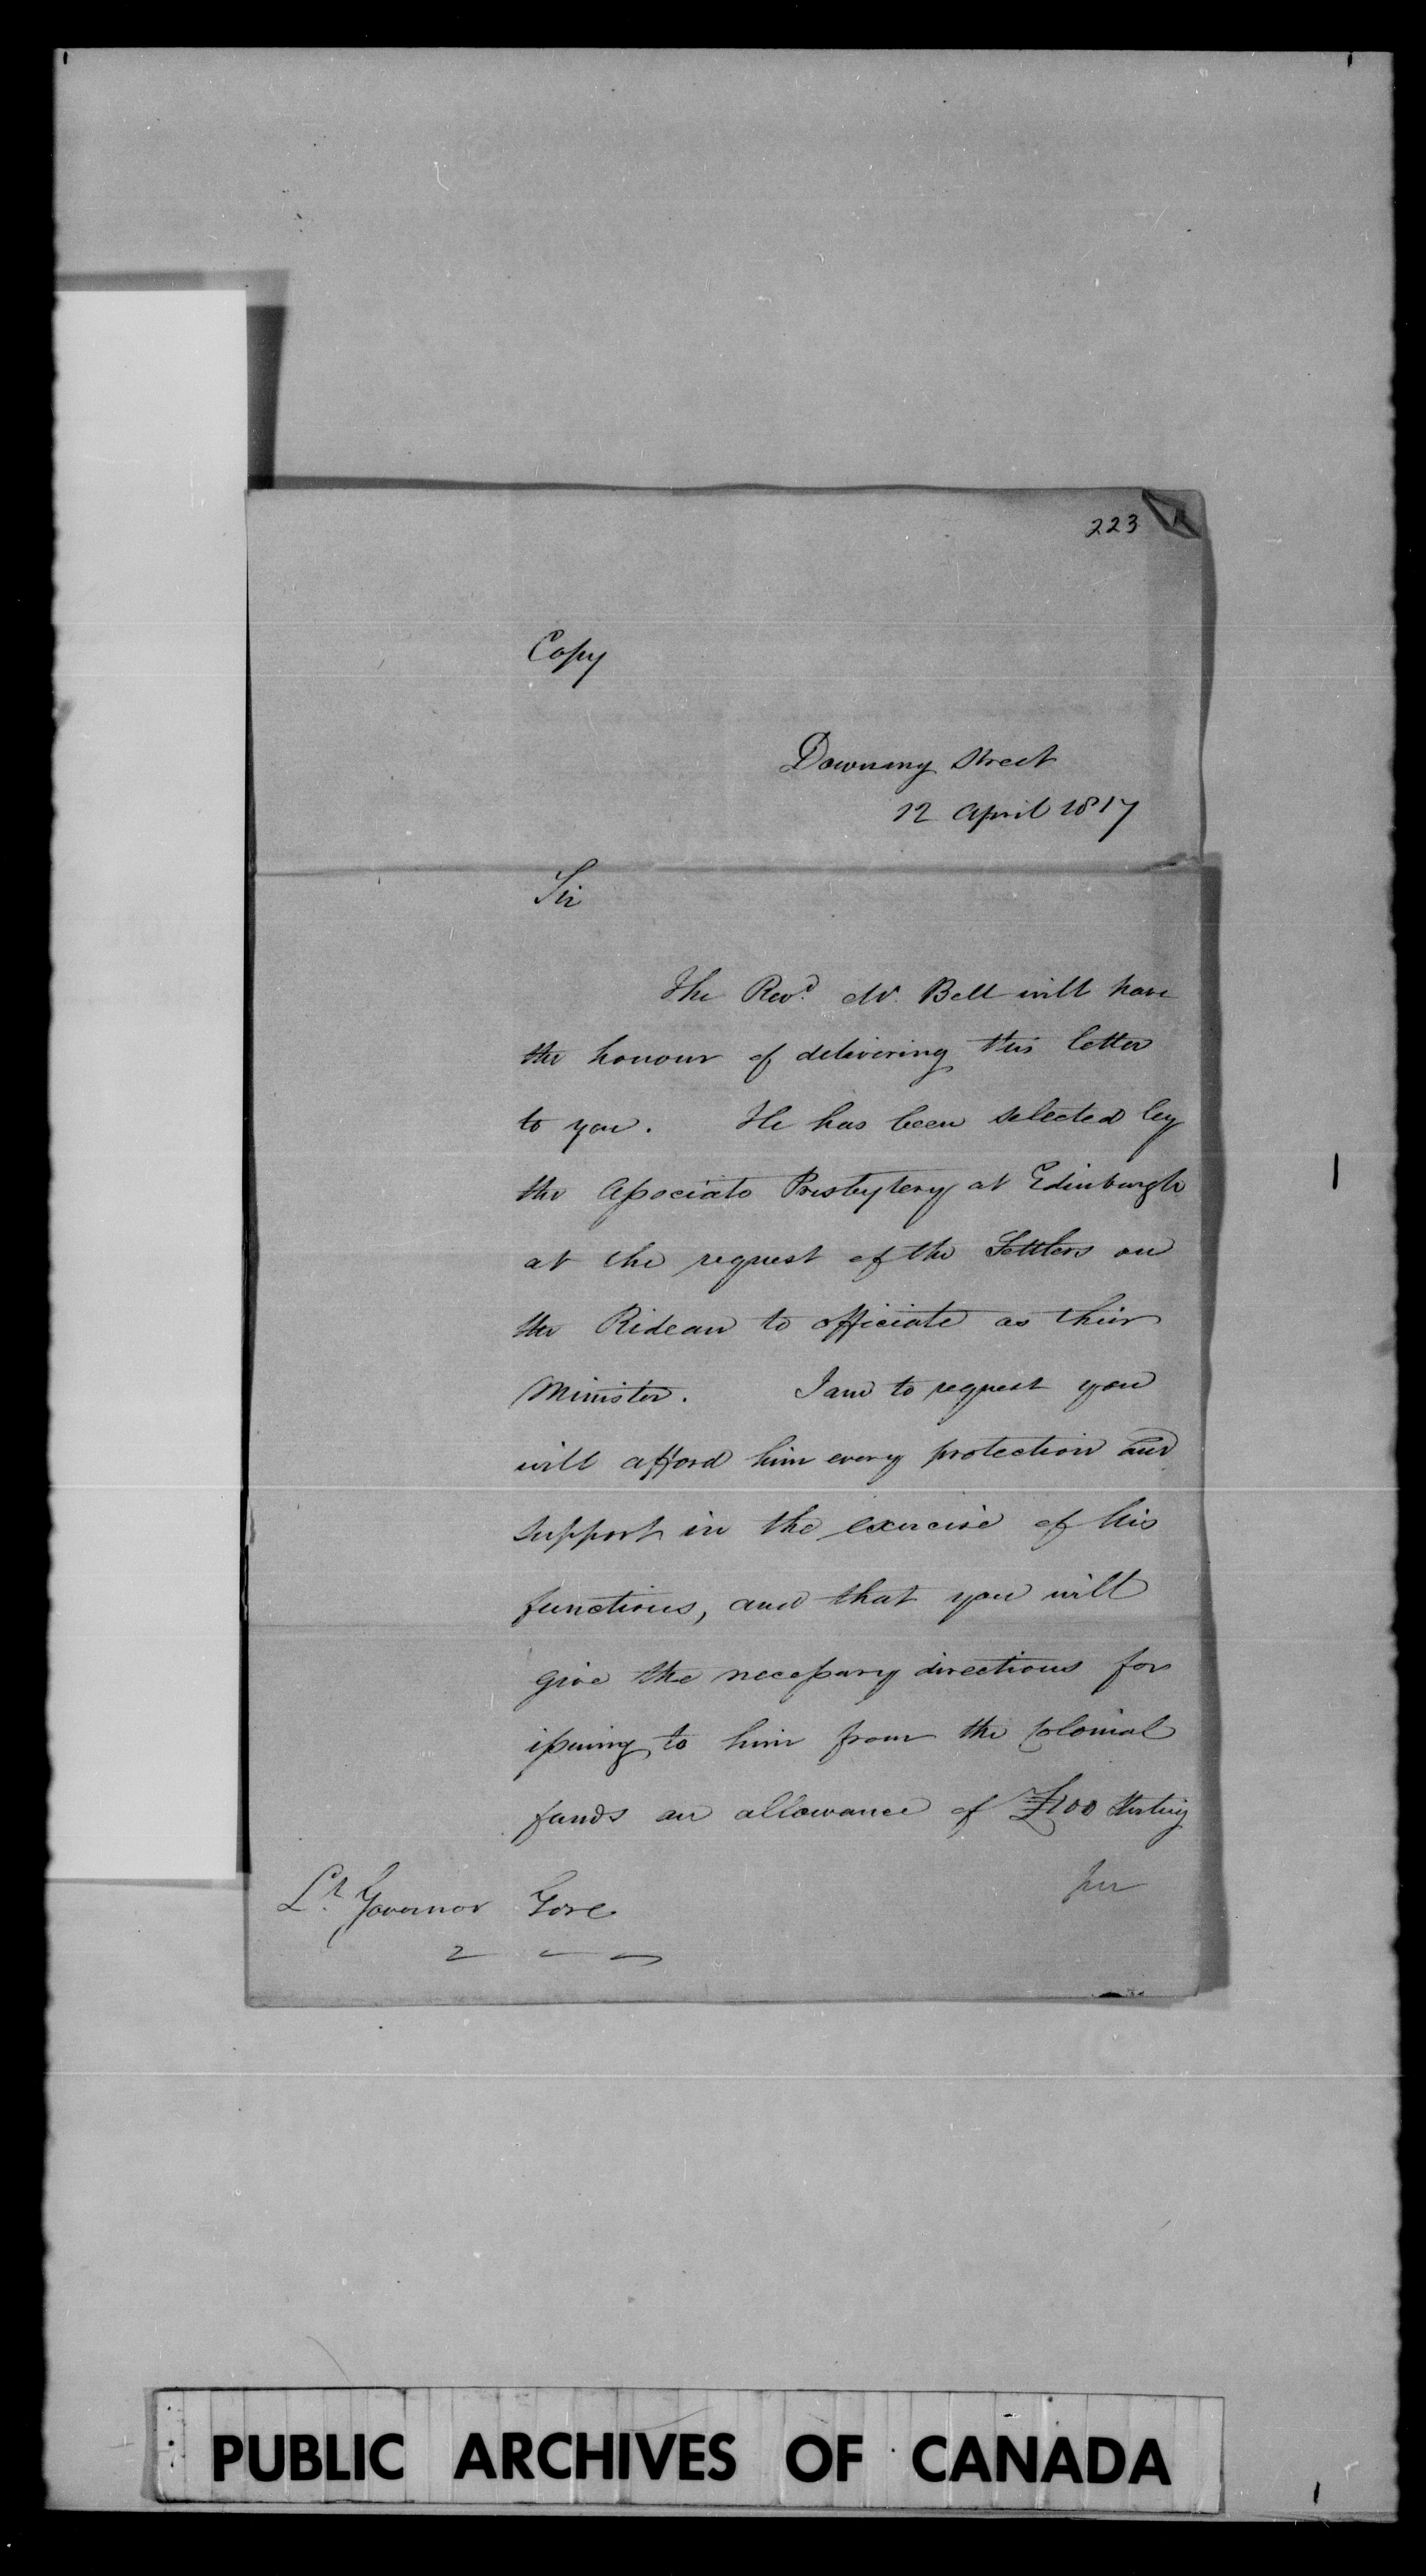 223
Copy
Downing Street
12 April 1817
Sir
The Revd. Mr. Bell will have
the honour of delivering this letter
to you. He has been selected by
the Associate Presbytery at Edinburgh
at the request of the Settlers on
the Rideau to officiate as their
Minister. I am to request you
will afford him every protection and
support in the exercise of his
functions, and that you will
give the necessary directions for
issuing to him from the Colonial
funds an allowance of £100 Sterling
per
Lt. Governor Gore
PUBLIC ARCHIVES OF CANADA